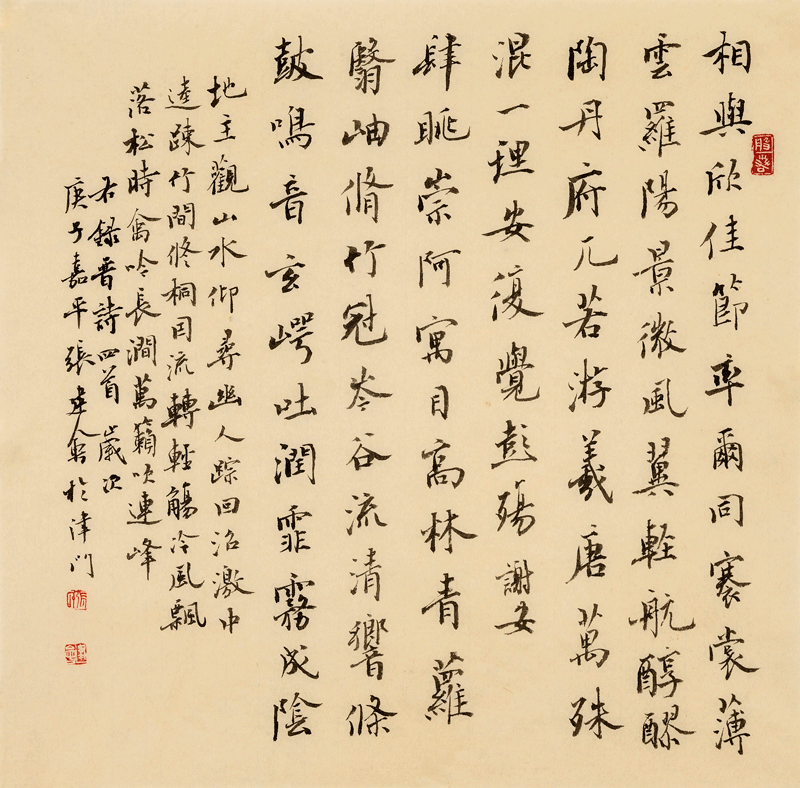 相與欣佳節率爾同褰裳薄
雲羅陽景微風翼輕航醇醪
陶丹府兀若游羲唐萬殊
混一理安復覺彭殤 謝安
肆眺崇阿寓目高林青蘿
翳岫脩竹冠岑谷流清響條
鼓鳴音玄崿吐潤霏霧成陰
地主觀山水仰尋幽人踪回沼激中
逵疎竹間修桐因流轉輕觴冷風飄
落松時禽吟長澗萬籟吹連峰
右錄晋詩四首歲次
庚子嘉平張建會於津門